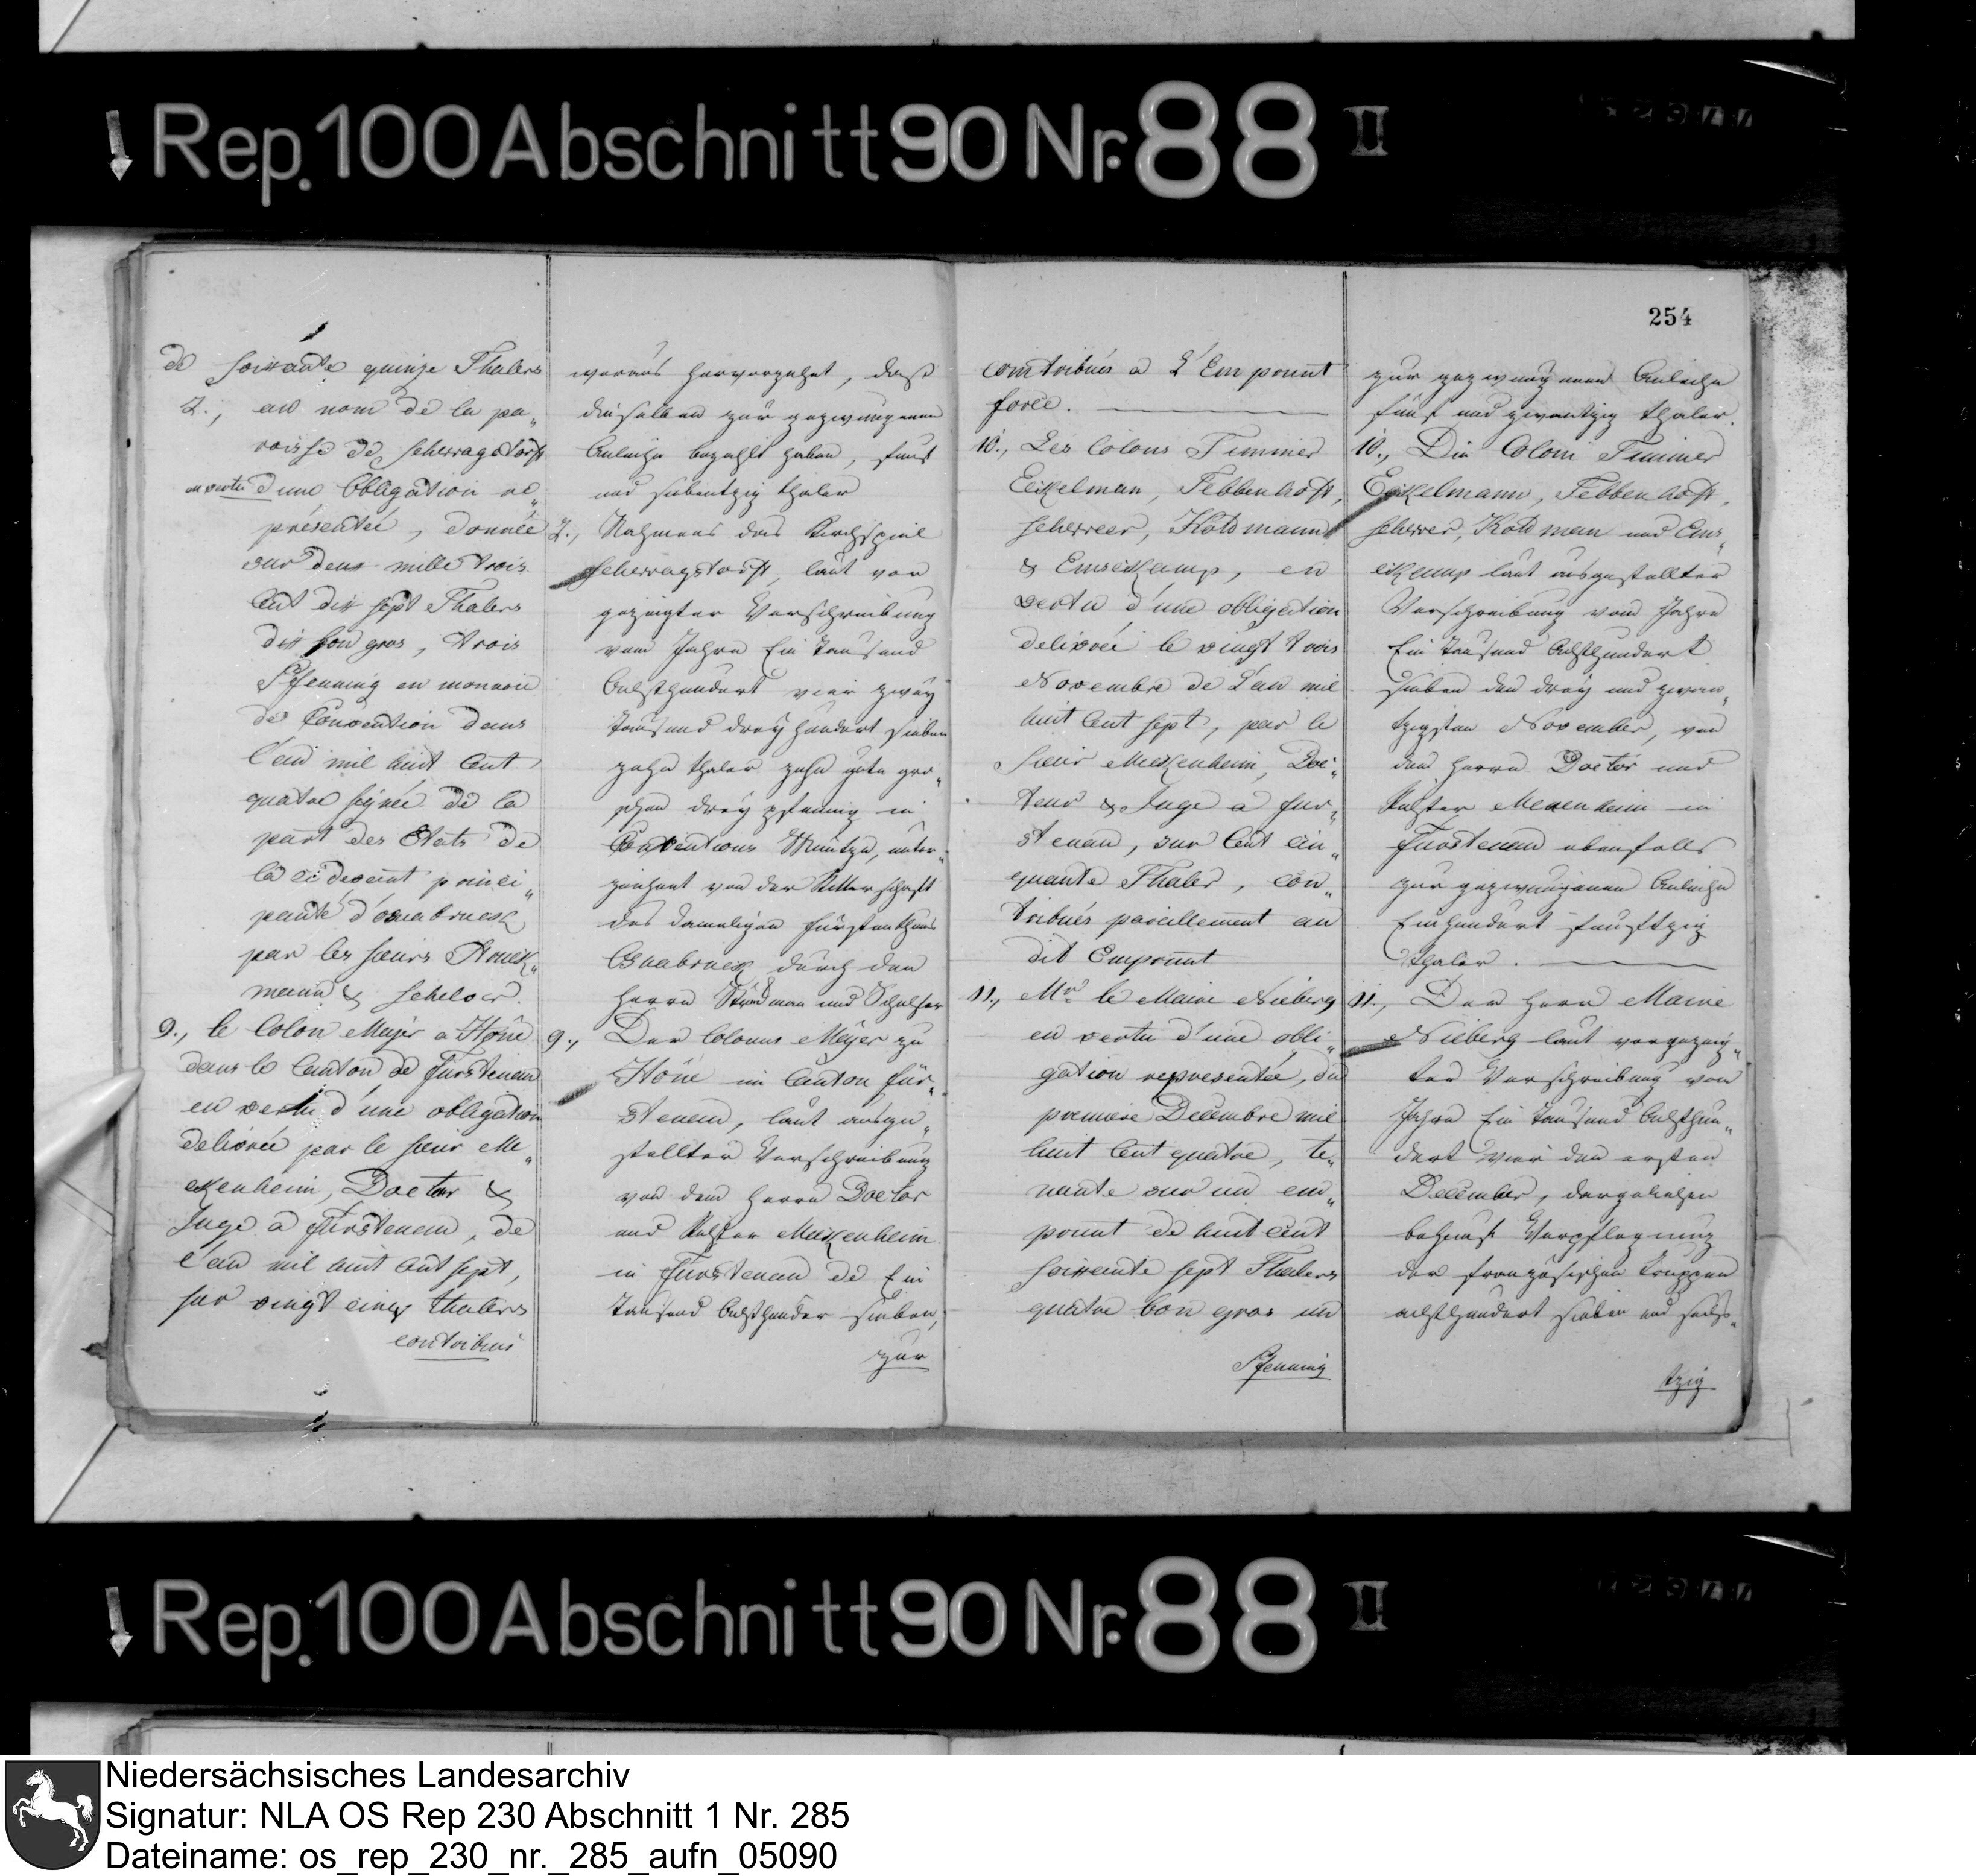 Rep. 100 Abschnitt 90 Nr. 88 II
254
de soixante quinze Thalers
2., au nom de la pa„
roisse de Scherragstorff
en vertu d'une Obligation re„
présentée, donnée
sur deux mille trois
Cent dix sept Thalers
dix bon gros, trois
Pfenning en monnoie
de Convention dans
l'an mil huit Cent
quatre signée de la
part des Etats de
la ci devant princi„
pauté d'osnabruck
par les sieurs
mann & Schelver.
9., le Colon Meyer a Höne
dans le Canton de Furstenau
en vertu d'une obligation
delivrée par le sieur Me„
ckenheim, Doctor &
Juge à Fürstenau, de
l'an mil huit Cent sept,
sur vingt cinq thalers
contribués
woraus hervorgehet, dass
dieselben zur gezwungenen
Anleihe bezahlt haben, fünf
und siebentzig thaler
2., Nahmens des Kirchspiel
Scherragstorff, laut vor
gezeigter Verschreibung
vom Jahre Ein Tausend
Achthundert vier zwey
Tausend drey hundert sieben
zehn thaler zehn gute gro„
schen drey pfennig in
Conventions Müntze, unter„
zeichnet von der Ritterschaft
des damaligen Fürstenthums
Osnabruck durch den
Herrn und Schelver
9., Der Colonus Meyer zu
Höne im Canton Für„
stenau, laut ausge„
stellter Verschreibung
von dem Herrn Doctor
und Richter Meckenheim
in Fürstenau de Ein
Tausend Achthundert sieben,
zur
contribués a L'Emprunt
forcé.
10., Les Colons Timmer
Eickelman, Tebbenhoff,
Scherrer, Kottmann
& Emseckamp, en
vertu d'une obligation
delivrée le vingt trois
Novembre de L'an mil
huit Cent sept, par le
Sieur Meckenheim, Doc„
teur & Juge a Fur„
stenau, sur Cent cin„
quante Thaler, con„
tribués pareillement au
dit Emprunt
11., Mr. le Maire Nieberg
en vertu d'une obli„
gation representée, du
premier Decembre mil
huit Cent quatre, te„
nante sur un em„
prunt de huit cent
soixante sept Thalers
quatre bon gros un
Pfenning
zur gezwungenen Anleihe
fünf und zwantzig thaler.
10., Die Coloni Timmer
Eickelmann, Tebbenhoff,
Scherrer, Kottman und Ems„
eckamp laut ausgestellter
Verschreibung vom Jahre
Ein Tausend Achthundert
sieben den drey und zwan„
tzigsten November, von
dem Herrn Doctor und
Richter Meckenheim in
Fürstenau ebenfalls
zur gezwungenen Anleihe
Einhundert fünftzig
thaler.
11., Der Herr Maire
Nieberg laut vorgezeig„
ter Verschreibung vom
Jahre Ein Tausend Achthun„
dert vier den ersten
December, dargeliehen
behuef Verpflegung
der französischen Truppen
achthundert sieben und sechs„
tzig
Rep. 100 Abschnitt 90 Nr. 88 II
Niedersächsisches Landesarchiv
Signatur: NLA OS Rep 230 Abschnitt 1 Nr. 285
Dateiname: os_rep_230_nr._285_aufn_05090